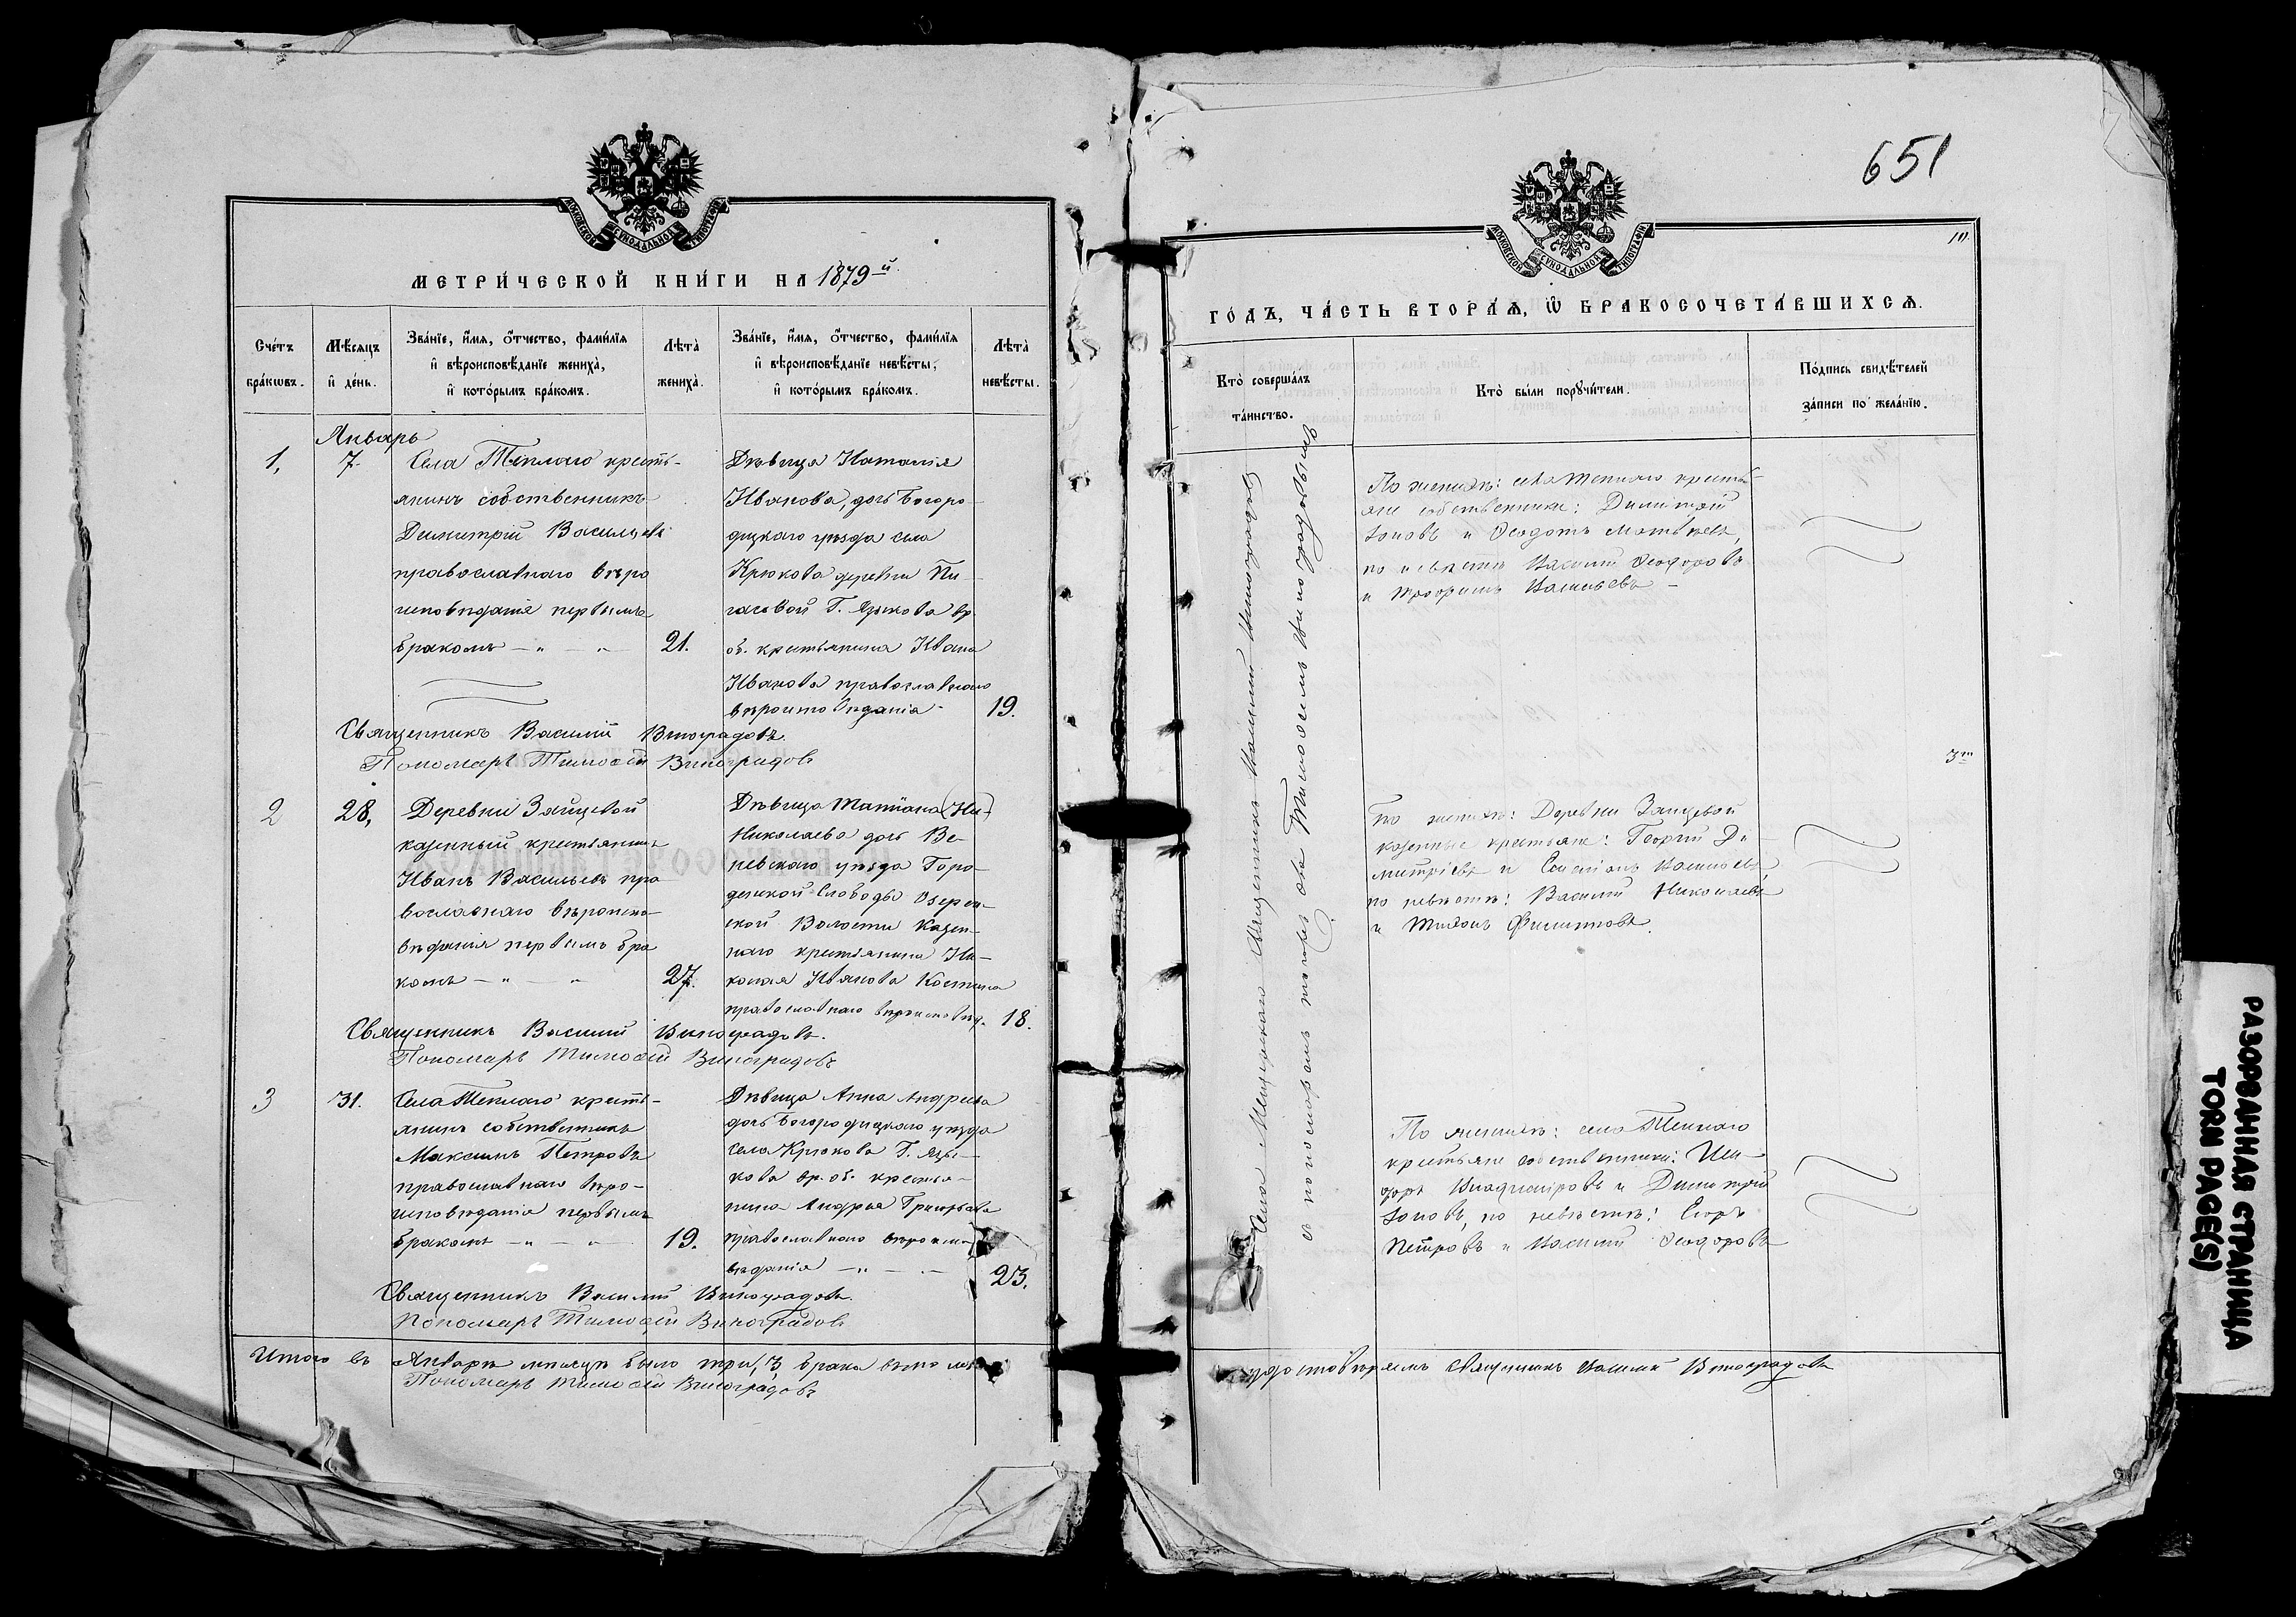 МОСКОВСКОЙ СѴНОДАЛЬНОЙ ТИПОГРАФІИ
МЕТРИ́ЧЕСКОЙ КНИ́ГИ НА 1879-й
Сче́тъ бра́кωвъ.
Мѣ́сяцъ и҆ де́нь.
Зва́нїе, и҆́мя, ѻ҆́тчество, фами́лїя
и҆ вѣроисповѣ́данїе жениха̀,
и҆ кото́рымъ бра́комъ.
Лѣта̀ жениха̀.
Зва́нїе, и҆́мя, ѻ҆́тчество, фами́лїя
и҆ вѣроисповѣ́данїе невѣ́сты,
и҆ кото́рымъ бра́комъ.
Лѣта̀ невѣ́сты.
Январь
1,
7.
Села Теплаго кресть-
янинъ собственникъ
Димитрій Васильевъ
православнаго вѣро
исповѣданія первымъ
бракомъ — „ — „
21.
Дѣвица Наталія
Иванова, дочь Богоро-
дицкаго уѣзда села
Крюкова деревни Пи-
гасовой Г. Языкова вр.
об. крестьянина Ивана
Иванова православнаго
вѣроисповѣданія
19.
Священникъ Василій Виноградовъ.
Пономарь Тимофей Виноградовъ
2
28,
Деревни Зайцевой
казенный крестьянинъ
Иванъ Васильевъ пра
вославнаго вѣроиспо-
вѣданія первымъ бра
комъ — „ — „
27.
Дѣвица Татіана (Ни-)
Николаева дочь Ве-
невскаго уѣзда Горо-
денской Слободы Озерен-
ской Волости Казен-
наго крестьянина Ни-
колая Иванова Костина
православнаго вѣроисповѣд.
18.
Священникъ Василій Виноградовъ.
Пономарь Тимофей Виноградовъ
3
31.
Села Теплаго кресть-
янинъ собственникъ
Максимъ Петровъ
православнаго вѣро-
исповѣданія первымъ
бракомъ — „ — „
19.
Дѣвица Анна Андреева
дочь Богородицкаго уѣзда
села Крюкова Г. Язы-
кова вр. об. крестья-
нина Андрея Григорьева
православнаго вѣроиспо
вѣданія — „ — „
23.
Священникъ Василій Виноградовъ.
Пономарь Тимофей Виноградовъ
Итого въ Январѣ мѣсяцѣ было три, 3 брака
Пономарь Тимофей Виноградовъ
651
МОСКОВСКОЙ СѴНОДАЛЬНОЙ ТИПОГРАФІИ
ГО́ДЪ, ЧА́СТЬ ВТОРА́Я, Ѡ҆ БРАКОСОЧЕТА́ВШИХСЯ.
Кто̀ соверша́лъ та́инство.
Кто̀ бы́ли порꙋчи́тели.
По́дпись свидѣ́телей
за́писи по жела́нїю.
Священникъ Василій Виноградовъ
съ пономаремъ Тимофеемъ Виноградовымъ
По женихѣ: села Теплаго кресть-
яне собственники: Димитрій
Іоновъ и Феодотъ Матвѣевъ,
по невѣстѣ Василій Феодоровъ
и Трофимъ Васильевъ —
По женихѣ: Деревни Зайцевой
казенные крестьяне: Георгій Ди-
митріевъ и Симеонъ Васильевъ,
по невѣстѣ: Василій Николаевъ
и Тихонъ Филипповъ.
По женихѣ: села Теплаго
крестьяне собственники: Иси-
доръ Владиміровъ и Димитрій
Іоновъ, по невѣстѣ: Егоръ
Петровъ и Василій Феодоровъ
удостовѣряемъ Священникъ Василій Виноградовъ
РАЗОРВАННАЯ СТРАНИЦА
TORN PAGE(S)